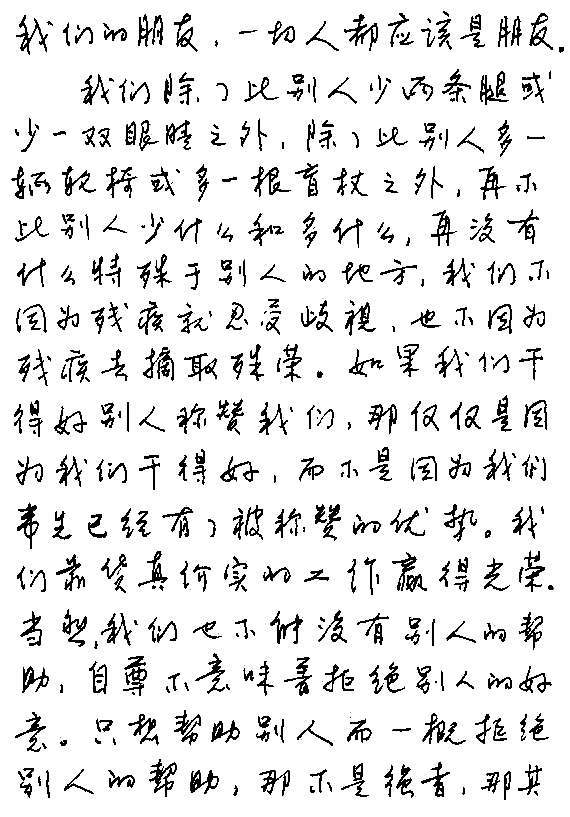 我们的朋友，一切人都应该是朋友。
我们除了比别人少两条腿或
少一双眼睛之外，除了比别人多一
辆轮椅或多一根盲杖之外，再不
比别人少什么和多什么，再没有
什么特殊于别人的地方，我们不
因为残疾就忍受歧视，也不因为
残疾去摘取殊荣。如果我们干
得好别人称赞我们，那仅仅是因
为我们干得好，而不是因为我们
事先已经有了被称赞的优势。我
们靠货真价实的工作赢得光荣。
当然，我们也不能没有别人的帮
助，自尊不意味着拒绝别人的好
意。只想帮助别人而一概拒绝
别人的帮助，那不是强者，那其